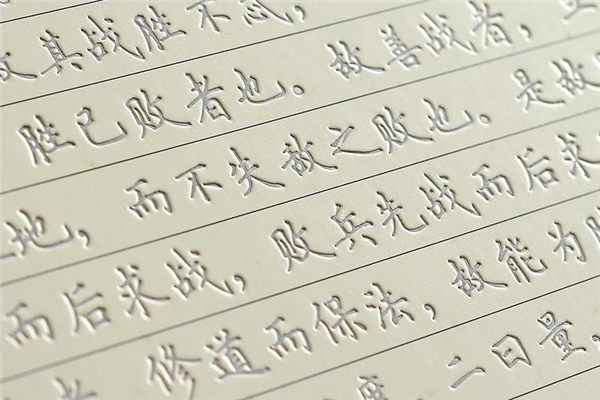 故其战胜不忒，
胜已败者也。故善战者，立
地，而不失敌之败也。是故
而后求战，败兵先战而后求
者，修道而保法，故能为胜
度，二曰量，